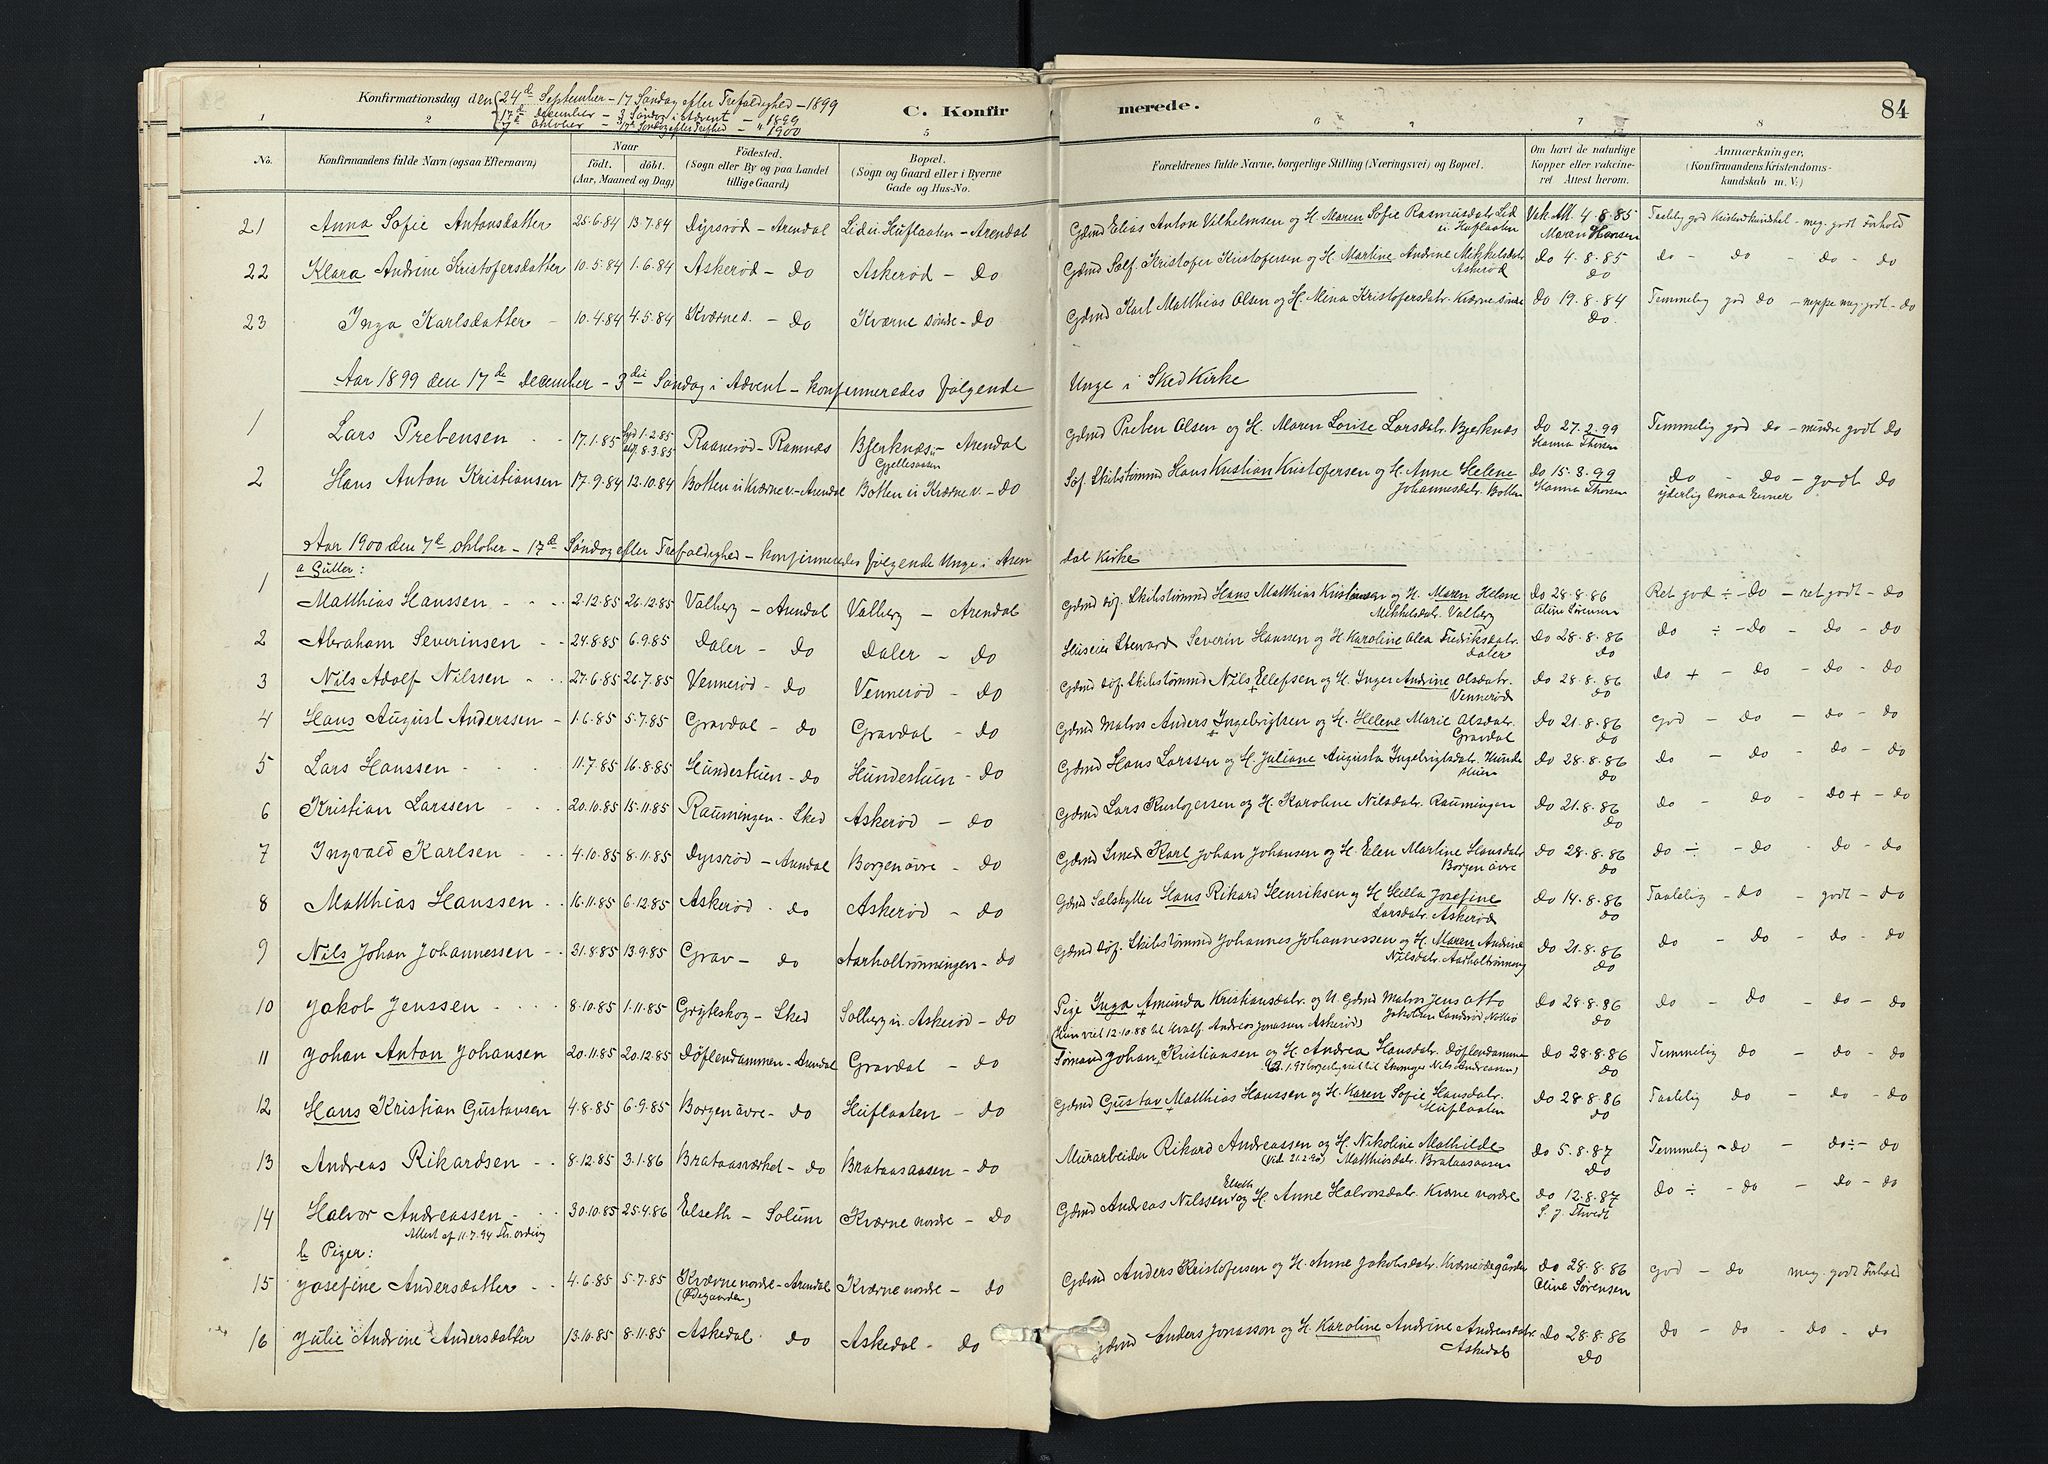 Konfirmationsdag den 24de September - 17 Søndag efter Trefoldighed - 1899
17de December - 3 Søndag i Advent - 1899
7de Oktober - 17de Søndag efter Trefhed - " 1900
C. Konfirmerede.
84
1 2 5 6 7 8
No. Konfirmandens fulde Navn (ogsaa Efternavn)
Naar født. døbt. (Aar, Maaned og Dag)
Fødested. (Sogn eller By og paa Landet tillige Gaard)
Bopæl. (Sogn og Gaard eller i Byerne Gade og Hus-No.
Forældrenes fulde Navne, borgerlige Stilling (Næringsvei) og Bopæl.
Om havt de naturlige Kopper eller vakcineret Attest herom.
Anmærkninger, (Konfirmandens Kristendomskundskab m. V.)
21 Anna Sofie Antonsdatter 25.6.84 13.7.84 Dyrsrød - Arendal Lid u. Huflaaten - Arendal Gdmd Elias Anton Vilhelmsen og H. Maren Sofie Rasmusdatr. Lid u. Huflaaten Vak. Att. 4.8.85 Maren Hansen Taalelig god Kristdkundskab - meg. godt Forhold
22 Klara Andrine Kristofersdatter 10.5.84 1.6.84 Askerød - do Askerød - do Gdmd Kristofer Kristofersen og H. Martine Andrine Mikkelsdatr. Askerød do 4.8.85 do do - do - do - do
23 Inga Karlsdatter 10.4.84 4.5.84 Kværne s. - do Kværne søndre - do Gdmd Karl Matthias Olsen og H. Mina Kristofersdatr. Kværne søndre do 19.8.84 do. Temmelig god do - neppe meg. godt - do
Aar 1899 den 17de December - 3die Søndag i Advent - konfirmeredes følgende Unge i Sked Kirke
1 Lars Prebensen 17.1.85 1.2.85 8.3.85 Raanerød - Ramnæs Bjerknæs u. Gjellesaasen - Arendal Gdmd Preben Olsen og H. Maren Lovise Larsdatr. Bjerknæs do 27.2.99 Hanna Thorsen Temmelig god do - mindre godt do
2 Hans Anton Kristiansen 17.9.84 12.10.84 Botten u. Kværne v. - Arendal Botten u. Kværne v. - do Skibstømmd Hans Kristian Kristofersen og H. Anne Helene Johannesdatr. Botten do 15.3.99 Hanna Thorsen do - do - godt do yderlig smaa Evner
Aar 1900 den 7de Oktober - 17de Søndag efter Trefoldighed - konfirmeredes følgende Unge i Arendal Kirke
a Gutter:
1 Matthias Hanssen 2.12.85 26.12.85 Valberg - Arendal Valberg - Arendal Skibstømmd Hans Matthias Kristiansen og H. Maren Helene Mikkelsdatr. Valberg do 28.8.86 Oline Sørensen Ret god ÷ do - ret godt - do
2 Abraham Severinsen 24.8.85 6.9.85 Daler - do Daler - do Huseier Steward Severin Hanssen og H. Karoline Olea Fredriksdatr. Daler do 28.8.86 do do ÷ do - do - do
3 Nils Adolf Nilssen 27.6.85 26.7.85 Vennerød - do Vennerød - do Skibstømmd Nils Ellefsen og H. Inger Andrine Olsdatr. Vennerød do 28.8.86 do do + - do - do - do
4 Hans August Anderssen 1.6.85 5.7.85 Gravdal - do Gravdal - do Gdmd Matros Anders Ingebrigtsen og H. Helene Marie Olsdatr. Gravdal do 21.8.86 do god - do - do - do
5 Lars Hanssen 11.7.85 16.8.85 Hundestuen - do Hundestuen - do Gdmd Hans Larssen og H. Juliane Augusta Ingebrigtsdatr. Hundestuen do 28.8.86 do do - do - do - do
6 Kristian Larssen 20.10.85 15.11.85 Raumingen - Sked Askerød - do Gdmd Lars Kristofersen og H. Karoline Nilsdatr. Raumingen do 21.8.86 do do - do - do + - do
7 Ingvald Karlsen 4.10.85 8.11.85 Dyrsrød - Arendal Borgen øvre - do Gdmd Smed Karl Johan Johansen og H. Elen Martine Hansdatr. Borgen øvre do 28.8.86 do do ÷ - do - do - do
8 Matthias Hanssen 16.11.85 6.12.85 Askerød - do Askerød - do Gdmd Hans Rikard Henriksen og H. Josefine Larsdatr. Askerød do 14.8.86 do Taalelig - do - godt - do
9 Nils Johan Johannessen 31.8.85 13.9.85 Grav - do Aarholtrønningen - do Skibstømmd Johannes Johannessen og H. Maren Andrine Nilsdatr. Aarholtrønning do 21.8.86 do do - do - do - do
10 Jakob Jenssen 8.10.85 1.11.85 Gryteskog - Sked Solberg u. Askerød - do Pige Inga Amunda Kristiansdatr. og U. Gdmd Matros Jens Otto (Hun viet 12.10.88 til Andreas Jonassen Askerød) do 28.8.86 do do - do - do - do
11 Johan Anton Johansen 20.11.85 20.12.85 Døflendammen - Arendal Gravdal - do Sømand Johan Kristiansen og H. Andrea Hansdatr. Døflendammen do 28.8.86 do Temmelig do - do - do
12 Hans Kristian Gustavsen 4.8.85 6.9.85 Borgen øvre - do Huflaaten - do Gdmd Gustav Matthias Hanssen og H. Karen Sofie Hansdatr. Huflaaten do 28.8.86 do Taalelig do - do - do
13 Andreas Rikardsen 8.12.85 3.1.86 Brataasværket - do Brataasaasen - do Murarbeider Rikard Andreassen og H. Nikoline Mathilde Matthiasdatr. Brataasaasen do 5.8.87 do Temmelig - do - do ÷ - do
14 Halvor Andreassen 30.10.85 25.4.86 Elseth - Solum Kværne nordre - do Gdmd Andreas Nilssen Elseth og H. Anne Halvorsdatr. Kværne nordre do 12.8.87 S. J. Thvedt do ÷ - do - do - do
Attest af 11.7.94
b Piger:
15 Josefine Andersdatter 4.6.85 5.7.85 Kværne nordre - Arendal (Ødegaarden) Kværne nordre - do Gdmd Anders Kristofersen og H. Anne Jakobsdatr. Kværneødegården do 28.8.86 Oline Sørensen god - do meg. godt Forhold
16 Julie Andrine Andersdatter 13.10.85 8.11.85 Askedal do Askedal - do Gdmd Anders Jonasson og H. Karoline Andrine Andreasdatr. Askedal do 28.8.86 do do - do - do - do